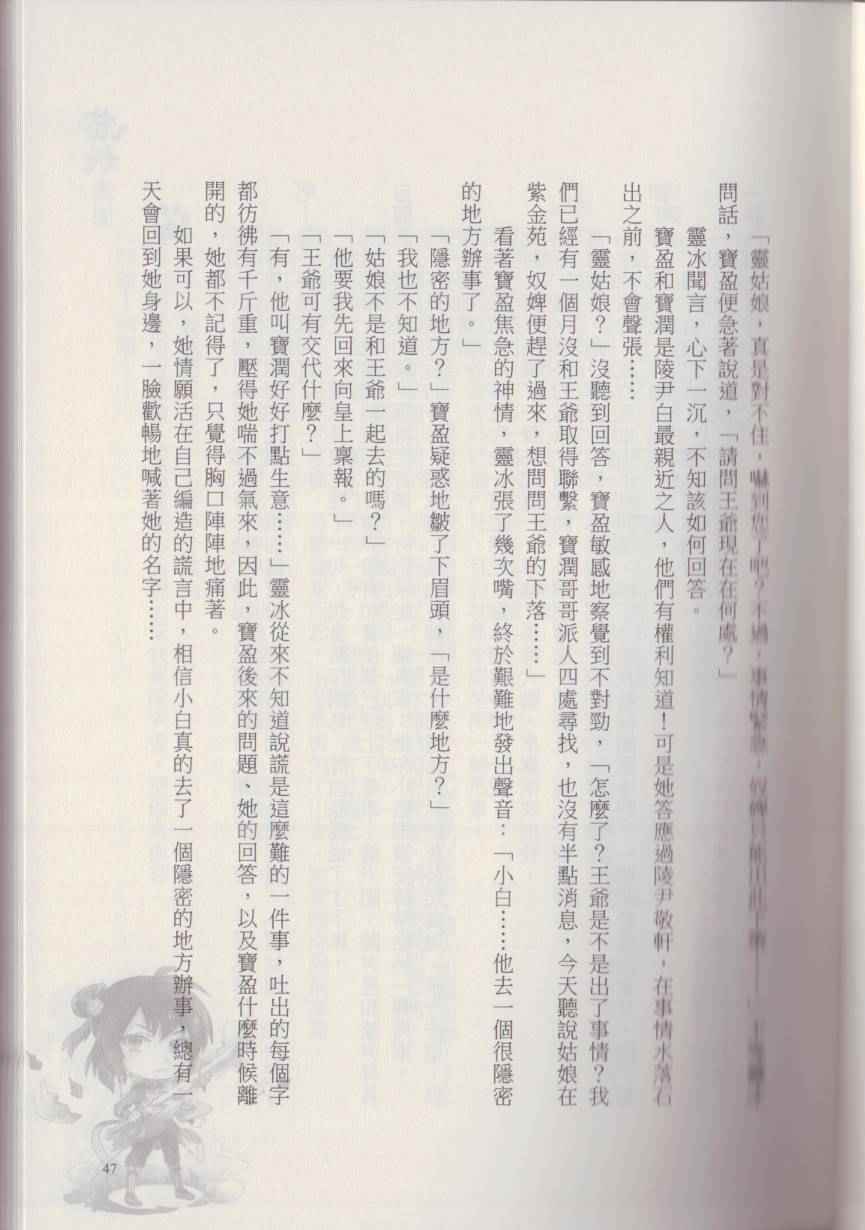 「靈姑娘，真是對不住，嚇到您了吧？不過，事情緊急，奴婢只能出此下策——」
問話，寶盈便急著說道，「請問王爺現在在何處？」
靈冰聞言，心下一沉，不知該如何回答。
寶盈和寶潤是陵尹白最親近之人，他們有權利知道！可是她答應過陵尹敬軒，在事情水落石
出之前，不會聲張……
「靈姑娘？」沒聽到回答，寶盈敏感地察覺到不對勁，「怎麼了？王爺是不是出了事情？我
們已經有一個月沒和王爺取得聯繫，寶潤哥哥派人四處尋找，也沒有半點消息，今天聽說姑娘在
紫金苑，奴婢便趕了過來，想問問王爺的下落……」
看著寶盈焦急的神情，靈冰張了幾次嘴，終於艱難地發出聲音：「小白……他去一個很隱密
的地方辦事了。」
「隱密的地方？」寶盈疑惑地皺了下眉頭，「是什麼地方？」
「我也不知道。」
「姑娘不是和王爺一起去的嗎？」
「他要我先回來向皇上稟報。」
「王爺可有交代什麼？」
「有，他叫寶潤好好打點生意……」靈冰從來不知道說謊是這麼難的一件事，吐出的每個字
都彷彿有千斤重，壓得她喘不過氣來，因此，寶盈後來的問題、她的回答，以及寶盈什麼時候離
開的，她都不記得了，只覺得胸口陣陣地痛著。
如果可以，她情願活在自己編造的謊言中，相信小白真的去了一個隱密的地方辦事，總有一
天會回到她身邊，一臉歡暢地喊著她的名字……
47